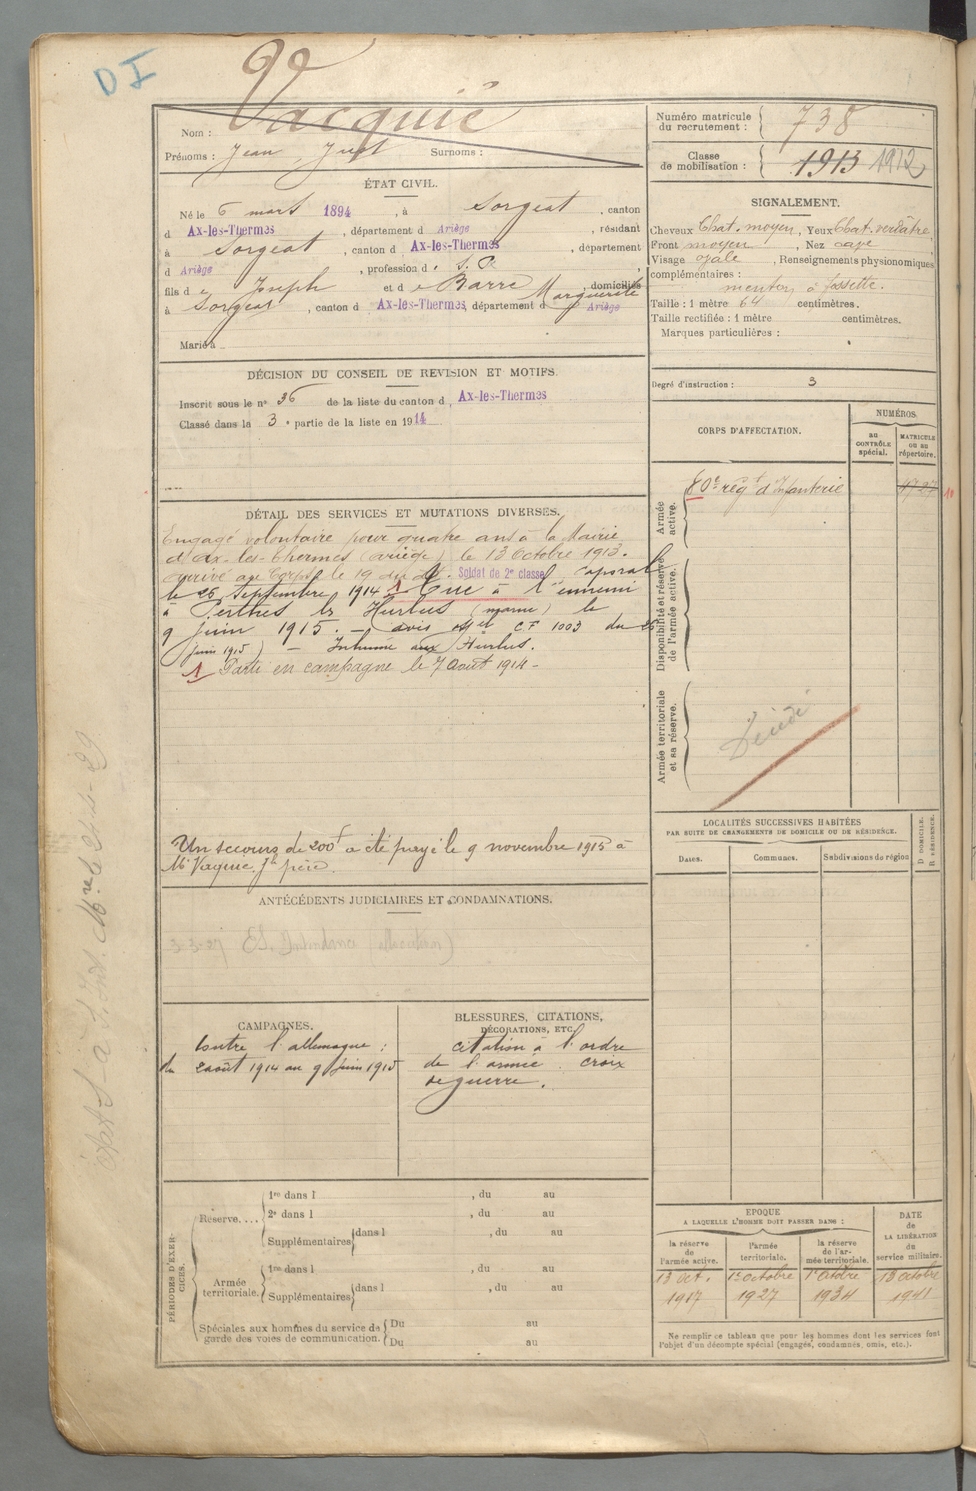 DI
Nom : Vacquié
Prénoms : Jean, Just Surnoms :
Numéro matricule du recrutement : 738
Classe de mobilisation : 1913 1912
ÉTAT CIVIL.
Né le 6 mars 1894, à Sorgeat, canton
d Ax-les-Thermes, département d Ariège, résidant
à Sorgeat, canton d Ax-les-Thermes, département
d Ariège, profession d. S. P.
fils d e Joseph et d e Barre Marguerite, domiciliés
à Sorgeat, canton d Ax-les-Thermes, département d Ariège
Marié à
SIGNALEMENT.
Cheveux Chat. moyen, Yeux Chat. verdâtre,
Front moyen, Nez cave
Visage ovale, Renseignements physionomiques
complémentaires :
menton à fossette.
Taille : 1 mètre 64 centimètres.
Taille rectifiée : 1 mètre centimètres.
Marques particulières :
Degré d'instruction : 3
DÉCISION DU CONSEIL DE REVISION ET MOTIFS.
Inscrit sous le n° 36 de la liste du canton d Ax-les-Thermes
Classé dans la 3e partie de la liste en 1914
CORPS D'AFFECTATION.
NUMÉROS.
au contrôle spécial.
MATRICULE OU AU répertoire.
Armée active.
80e régt d'Infanterie 1727
Disponibilité et réserve de l'armée active.
Armée territoriale et sa réserve.
Décédé
DÉTAIL DES SERVICES ET MUTATIONS DIVERSES.
Engagé volontaire pour quatre ans à la Mairie
d'Ax-les-Thermes (Ariège) le 13 Octobre 1913.
Arrivé au Corps le 19 du dit. Soldat de 2e classe Caporal
le 26 Septembre 1914 1 Tué à l'ennemi
à Perthes les Hurlus (marne) le
9 juin 1915. — avis offel C.F 1003 du 26
juin 1915) — Inhumé aux Hurlus.
1 Parti en campagne le 7 Août 1914 -
Un secours de 200f a été payé le 9 novembre 1915 à
Mr Vaquié Jh père.
LOCALITÉS SUCCESSIVES HABITÉES
PAR SUITE DE CHANGEMENTS DE DOMICILE OU DE RÉSIDENCE.
Dates.
Communes.
Subdivisions de région
D DOMICILE.
R RÉSIDENCE.
ANTÉCÉDENTS JUDICIAIRES ET CONDAMNATIONS.
CAMPAGNES.
Contre l'allemagne :
du 2 août 1914 au 9 juin 1915
BLESSURES, CITATIONS,
DÉCORATIONS, ETC.
citation à l'ordre
de l'armée. croix
de guerre.
PÉRIODES D'EXERCICES.
Réserve....
1re dans l , du au
2e dans l , du au
Supplémentaires dans l , du au
Armée territoriale.
1re dans l , du au
Supplémentaires dans l , du au
Spéciales aux hommes du service de garde des voies de communication.
Du au
Du au
EPOQUE
A LAQUELLE L'HOMME DOIT PASSER DANS :
la réserve de l'armée active.
l'armée territoriale.
la réserve de l'armée territoriale.
DATE de LA LIBÉRATION du service militaire.
13 oct. 1917
1er octobre 1927
1er octobre 1934
13 octobre 1941
Ne remplir ce tableau que pour les hommes dont les services font
l'objet d'un décompte spécial (engagés, condamnés, omis, etc.).